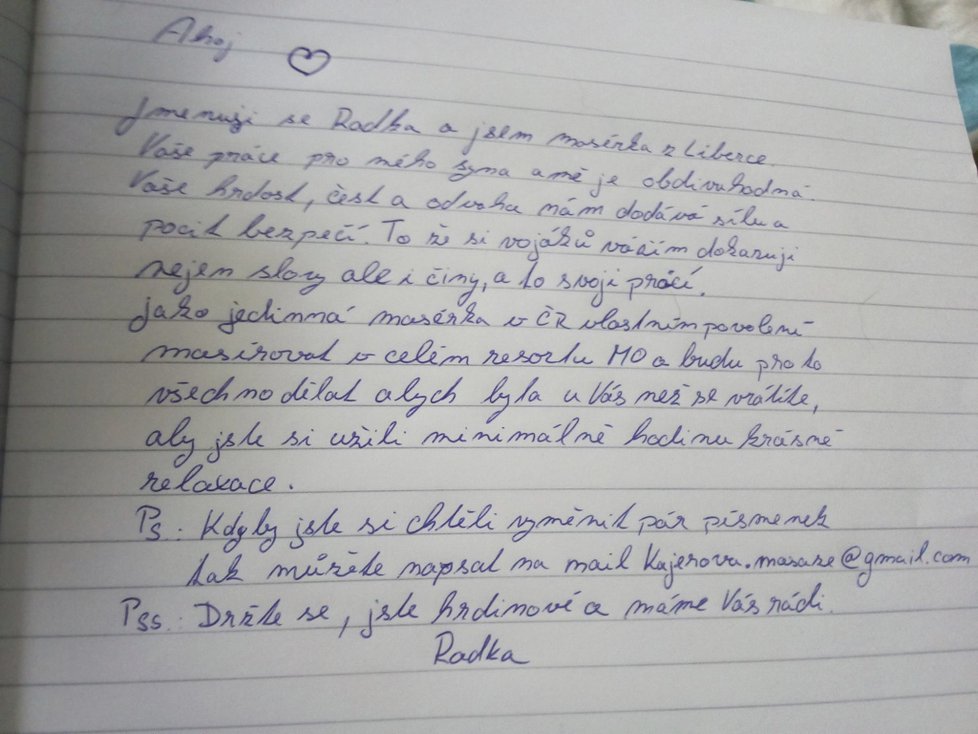 Ahoj ♡
Jmenuji se Radka a jsem masérka z Liberce.
Vaše práce pro mého syna a mě je obdivuhodná.
Vaše hrdost, čest a odvaha nám dodává sílu a
pocit bezpečí. To že si vojáků vážím dokazuji
nejen slovy ale i činy, a to svojí prácí.
Jako jedinná masérka v ČR vlastním povolení
masírovat v celém resortu MO a budu pro to
všechno dělat abych byla u Vás než se vrátíte,
aby jste si užili minimálně hodinu krásné
relaxace.
Ps: Kdyby jste si chtěli vyměnit pár písmenek
tak můžete napsat na mail Kajerova.masaze@gmail.com
Pss: Držte se, jste hrdinové a máme Vás rádi.
Radka